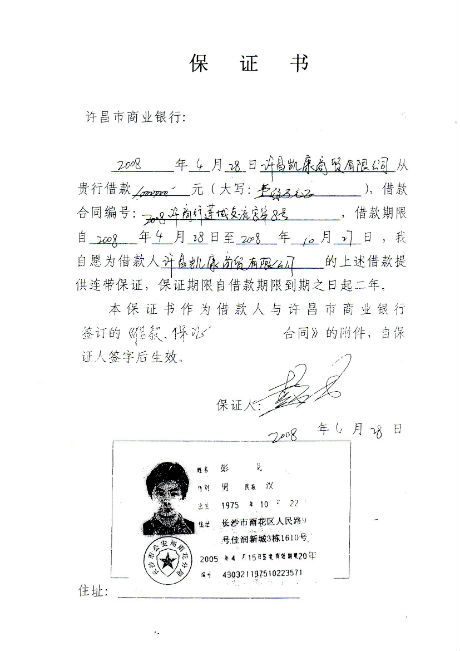 保 证 书
许昌市商业银行：
2008 年 4 月 28 日许昌凯康商贸有限公司从
贵行借款 1000000 元（大写：壹佰万元），借款
合同编号： 2008 许商行莲城支流字第8号 ，借款期限
自 2008 年 4 月 28 日至 2008 年 10 月 27 日，我
自愿为借款人许昌凯康商贸有限公司的上述借款提
供连带保证，保证期限自借款期限到期之日起二年。
本保证书作为借款人与许昌市商业银行
签订的《借款、保证 合同》的附件，自保
证人签字后生效。
保证人：
2008 年 4 月 28 日
姓名 彭
性别 男 民族 汉
出生 1975 年 10 月 22
住址 长沙市雨花区人民路9
号佳润新城3栋1610号
2005 年 4 月15日签发有效期限20年
编号 430321197510223571
住址：